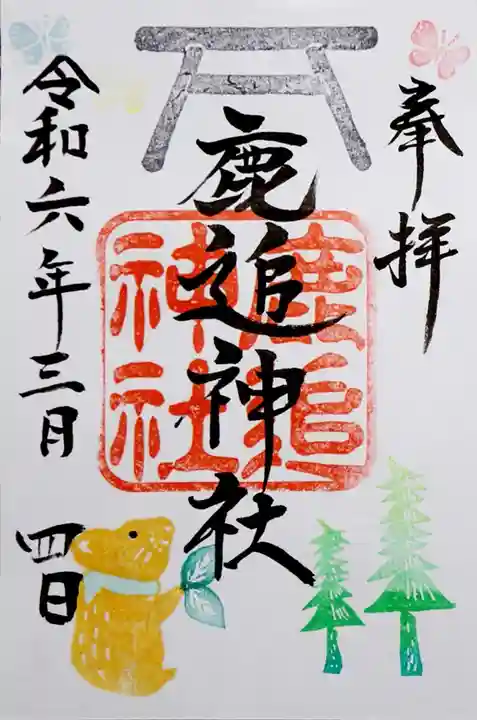 奉拝
鹿追神社
鹿追
神社
令和六年三月
四日